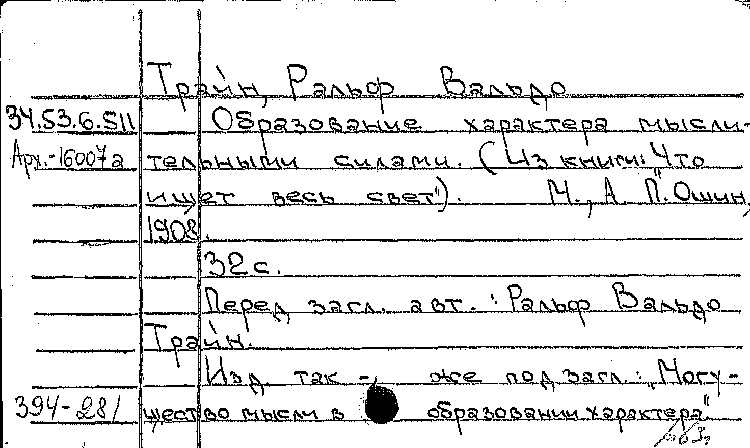 Трайн, Ральф Вальдо
34.53.6.511 Образование характера мысли-
Арх.-16007а тельными силами. (Из книги: "Что
ищет весь свет"). М., А. П. Ошин,
1908.
32 с.
Перед загл. авт.: Ральф Вальдо
Трайн.
Изд. так-же под загл.: "Могу-
394-281 щество мысли в образовании характера".